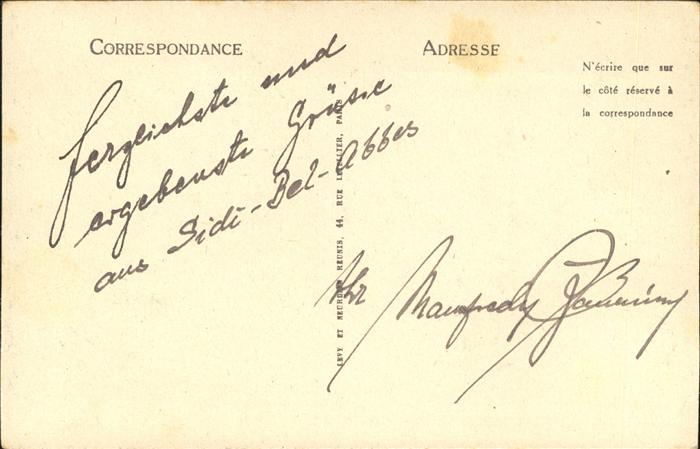 CORRESPONDANCE
ADRESSE
N'écrire que sur
le côté réservé à
la correspondance
herzlichste und
ergebenste Grüsse
aus Sidi-Bel-Abbes
Ihr Manfred
LEVY ET NEURDEIN RÉUNIS, 44, RUE LETELLIER, PARIS